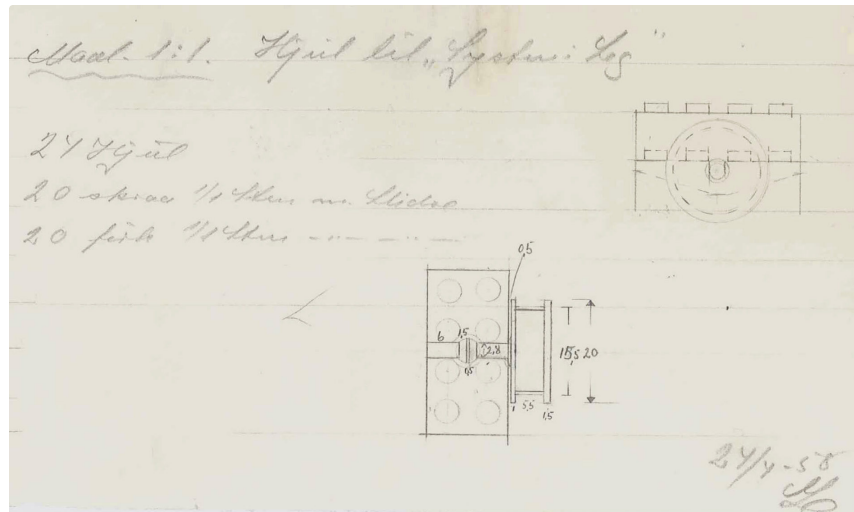 Maal. 1:1. Hjul til „System i Leg"
24 Hjul
20 skraa 1/1 Sten m. Slidse
20 firk 1/1 Sten -"- -"-
0,5
6 1,5 2,8
1,5
15,5 20
1 5,5 1,5
24/4-58